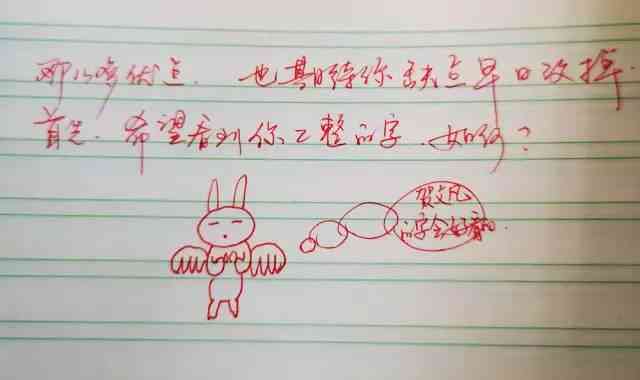 那么多优点.也期待你缺点早日改掉.
首先.希望看到你工整的字.如何?
贺文凡
的字会好看的.